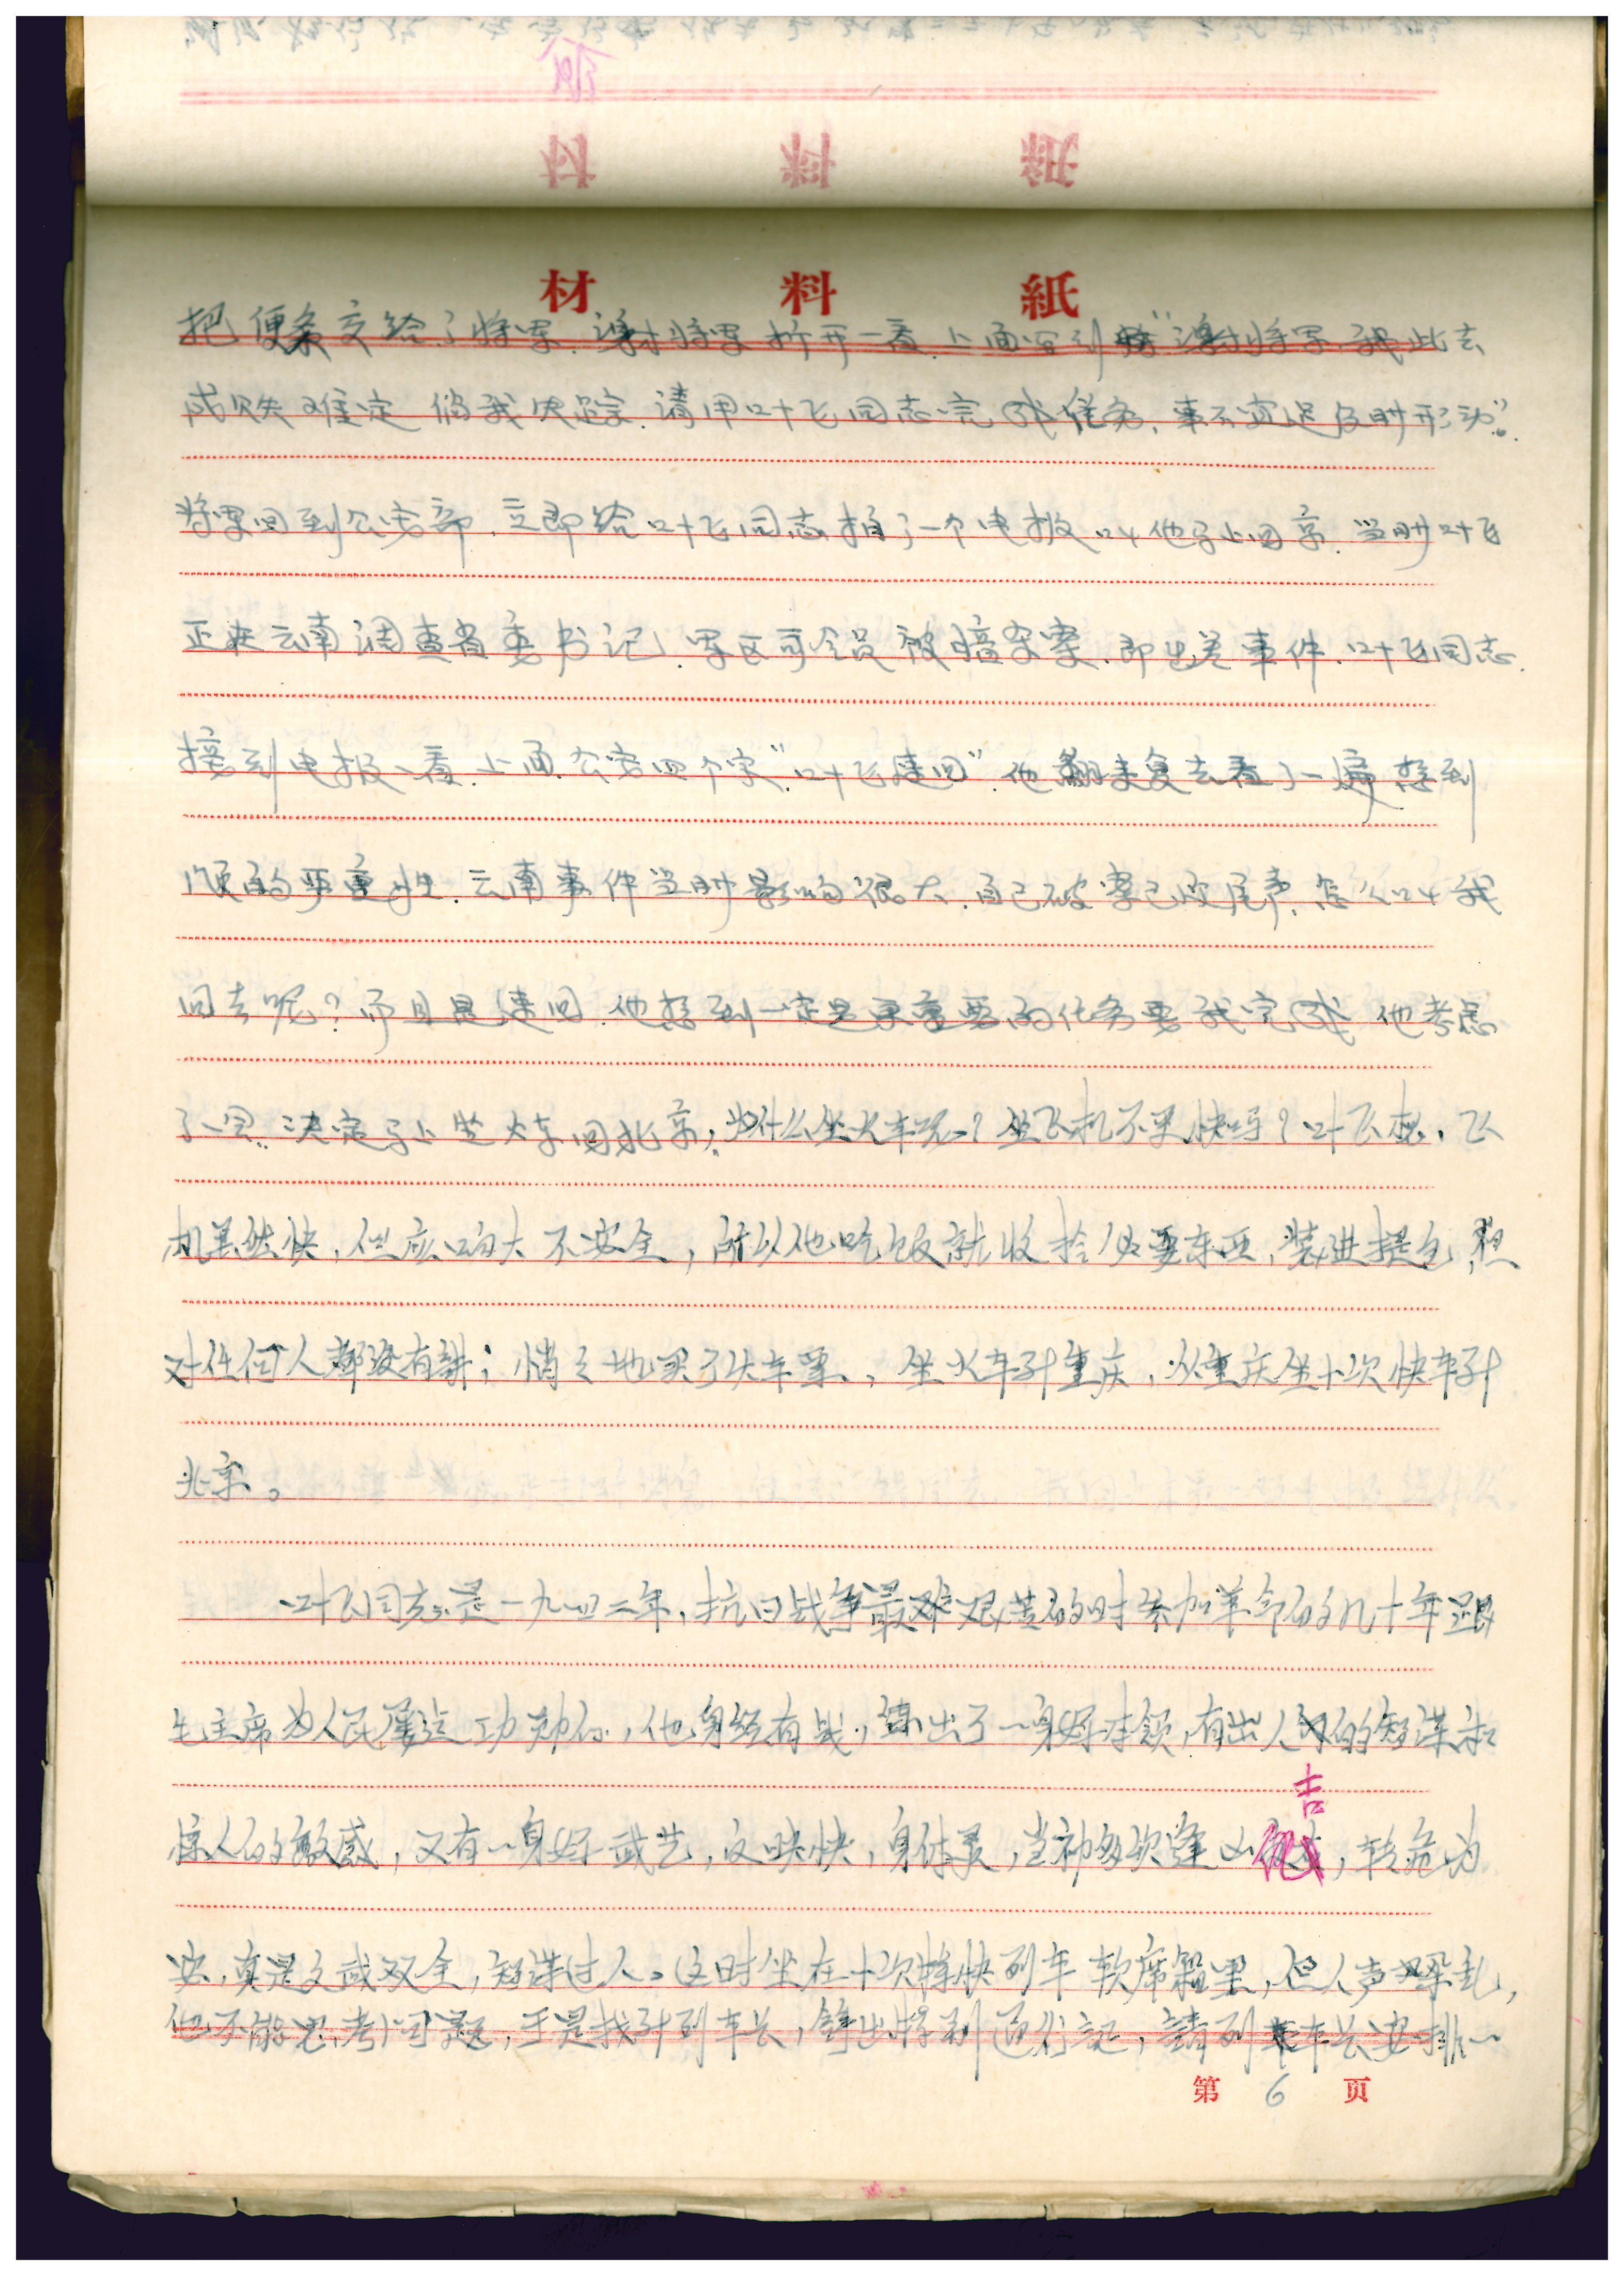 材 料 紙
把便条交给了将军.谢将军折开一看.上面写到"谢将军.我此去
成败难定 倘我失踪.请用叶飞同志完成任务.事不宜迟及时形动".
将军回到公安部.立即给叶飞同志拍了一个电报叫他马上回京.当时叶飞
正在云南调查省委书记.军区司令员被暗杀案.即出差事件.叶飞同志.
接到电报一看.上面公安四个字"叶飞速回".他翻来复去看了一遍想到
问题的严重性.云南事件当时影响很大.自己破案已收尾声.怎么叫我
回去呢?而且是速回.他想到一定是更重要的任务要我完成 他考虑
了一会.决定马上坐火车回北京,为什么坐火车呢?坐飞机不更快吗?叶飞想,飞
机虽然快,但应响大不安全,所以他吃饭就收拾必要东西,装进提包,但
对任何人都没有讲;悄之地买了火车票,坐火车到重庆,从重庆坐十次快车到
北京。
叶飞同志是一九四二年,抗日战争最艰苦的时参加革命的几十年跟
毛主席为人民屡立功勋,他身经百战,练出了一身好本领,有出人的智谋和
惊人的敏感,又有一身好武艺,反映快,身体灵,当初多次逢凶化吉,转危为
安,真是文武双全,智谋过人。这时坐在十次特快列车软席箱里,但人声噪乱,
他不能思考问题,于是找到列车长,拿出特别通行证,請列车长安排一
第 6 页